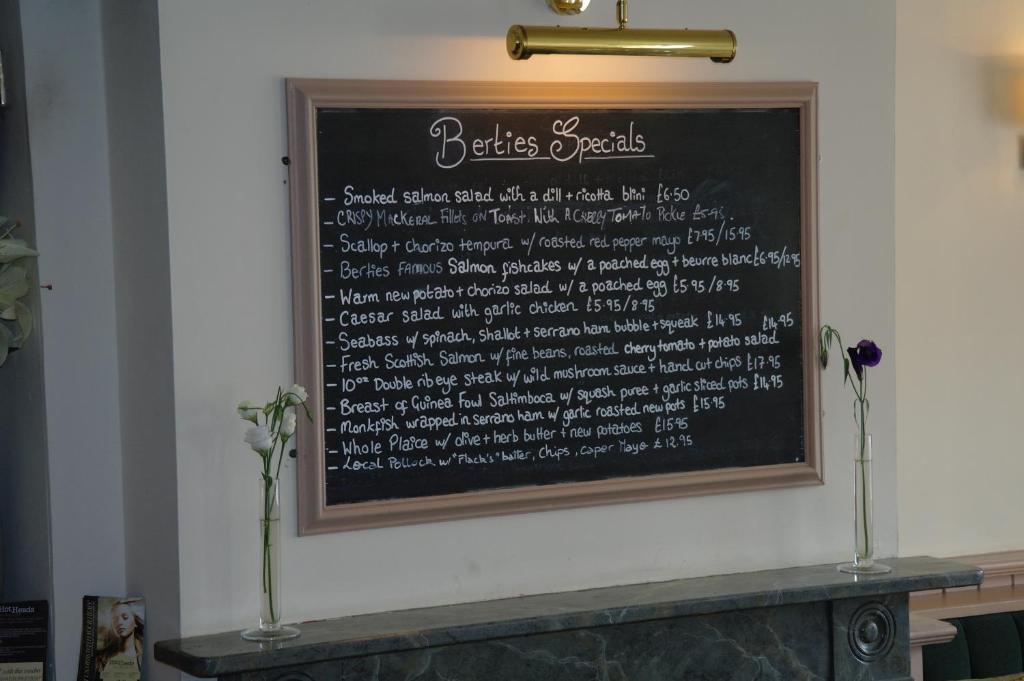 Berties Specials
- Smoked salmon salad with a dill + ricotta blini £6.50
- CRISPY MACKERAL Fillets ON TOAST. With A CHERRY TOMATO Pickle £5.95.
- Scallop + chorizo tempura w/ roasted red pepper mayo £7.95/15.95
- Berties FAMOUS Salmon fishcakes w/ a poached egg + beurre blanc £6.95/12.95
- Warm new potato + chorizo salad w/ a poached egg £5.95/8.95
- Caesar salad with garlic chicken £5.95/8.95
- Seabass w/ spinach, shallot + serrano ham bubble + squeak £14.95
- Fresh Scottish Salmon w/ fine beans, roasted cherry tomato + potato salad £14.95
- 10oz Double rib eye steak w/ wild mushroom sauce + hand cut chips £17.95
- Breast of Guinea Fowl Saltimboca w/ squash puree + garlic sliced pots £14.95
- Monkfish wrapped in serrano ham w/ garlic roasted new pots £15.95
- Whole Plaice w/ olive + herb butter + new potatoes £15.95
- Local Pollock w/ "Flack's" batter, Chips, caper Mayo £12.95
Hot Heads